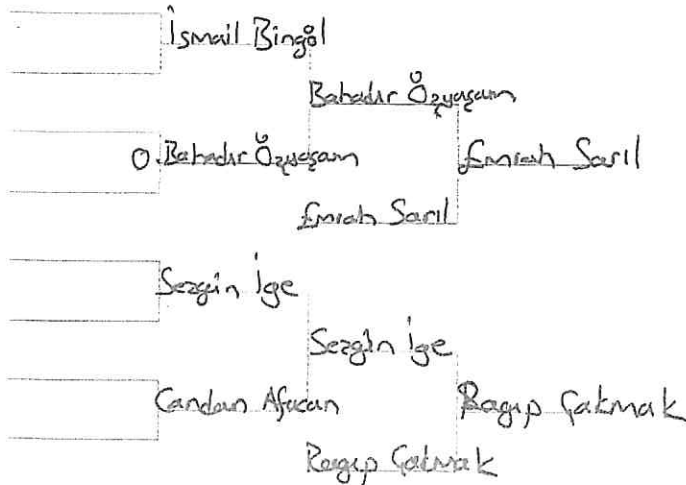 İsmail Bingöl
Bahadır Özyaşam
O. Bahadır Özyaşam
Emrah Sarıl
Emrah Sarıl
Sezgin İge
Sezgin İge
Candan Afacan
Ragıp Çakmak
Ragıp Çakmak